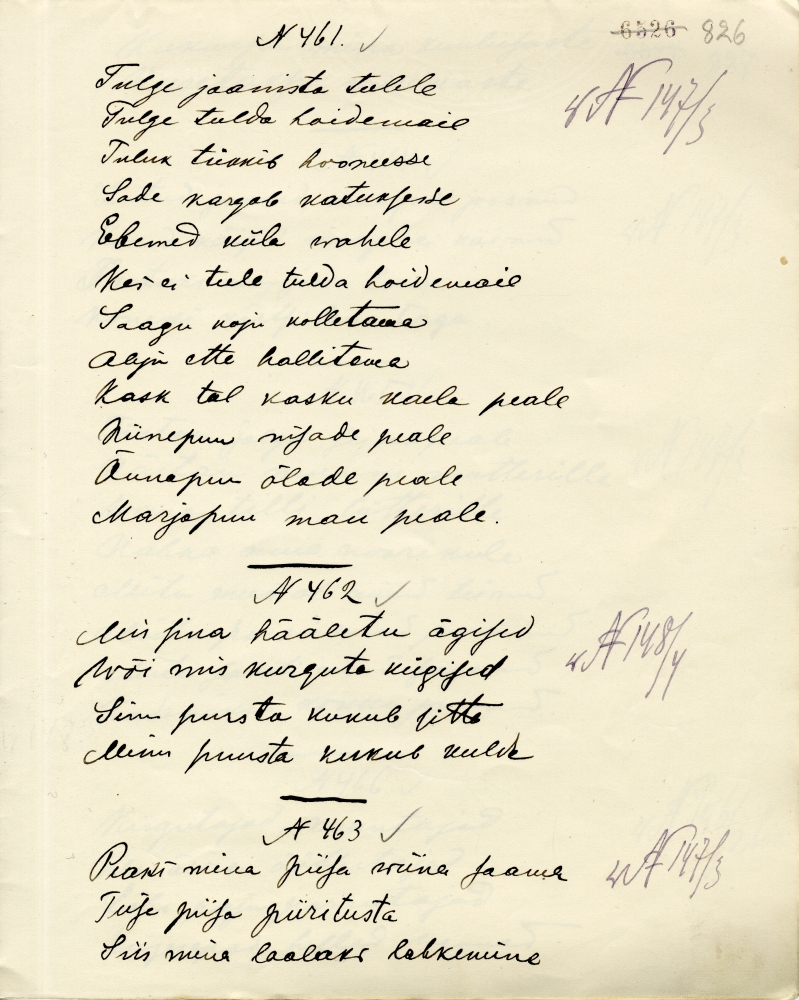 N 461.
6526 826
Tulge jaanista tulele
N 147/3
Tulge tulda hoidemaie
Tuluk tiunib hooneesse
Säde kargab katuksesse
Ebemed küla wahele
Kes ei tule tulda hoidemaie
Saagu koju kolletama
Ahju ette hallitama
Kask tal kasku kaela peale
Niinepuu nisade peale
Õunapuu õlade peale
Marjapuu mau peale.
N 462
Mis sina hääletu ägised
N 148/4
Wõi mis kurguta kügised
Sinu puusta kukub sitta
Minu suusta kukub kulda
N 463
Peaks mina piisa wiina saama
N 147/3
Tuise piisa piiritusta
Siis mina laalaks